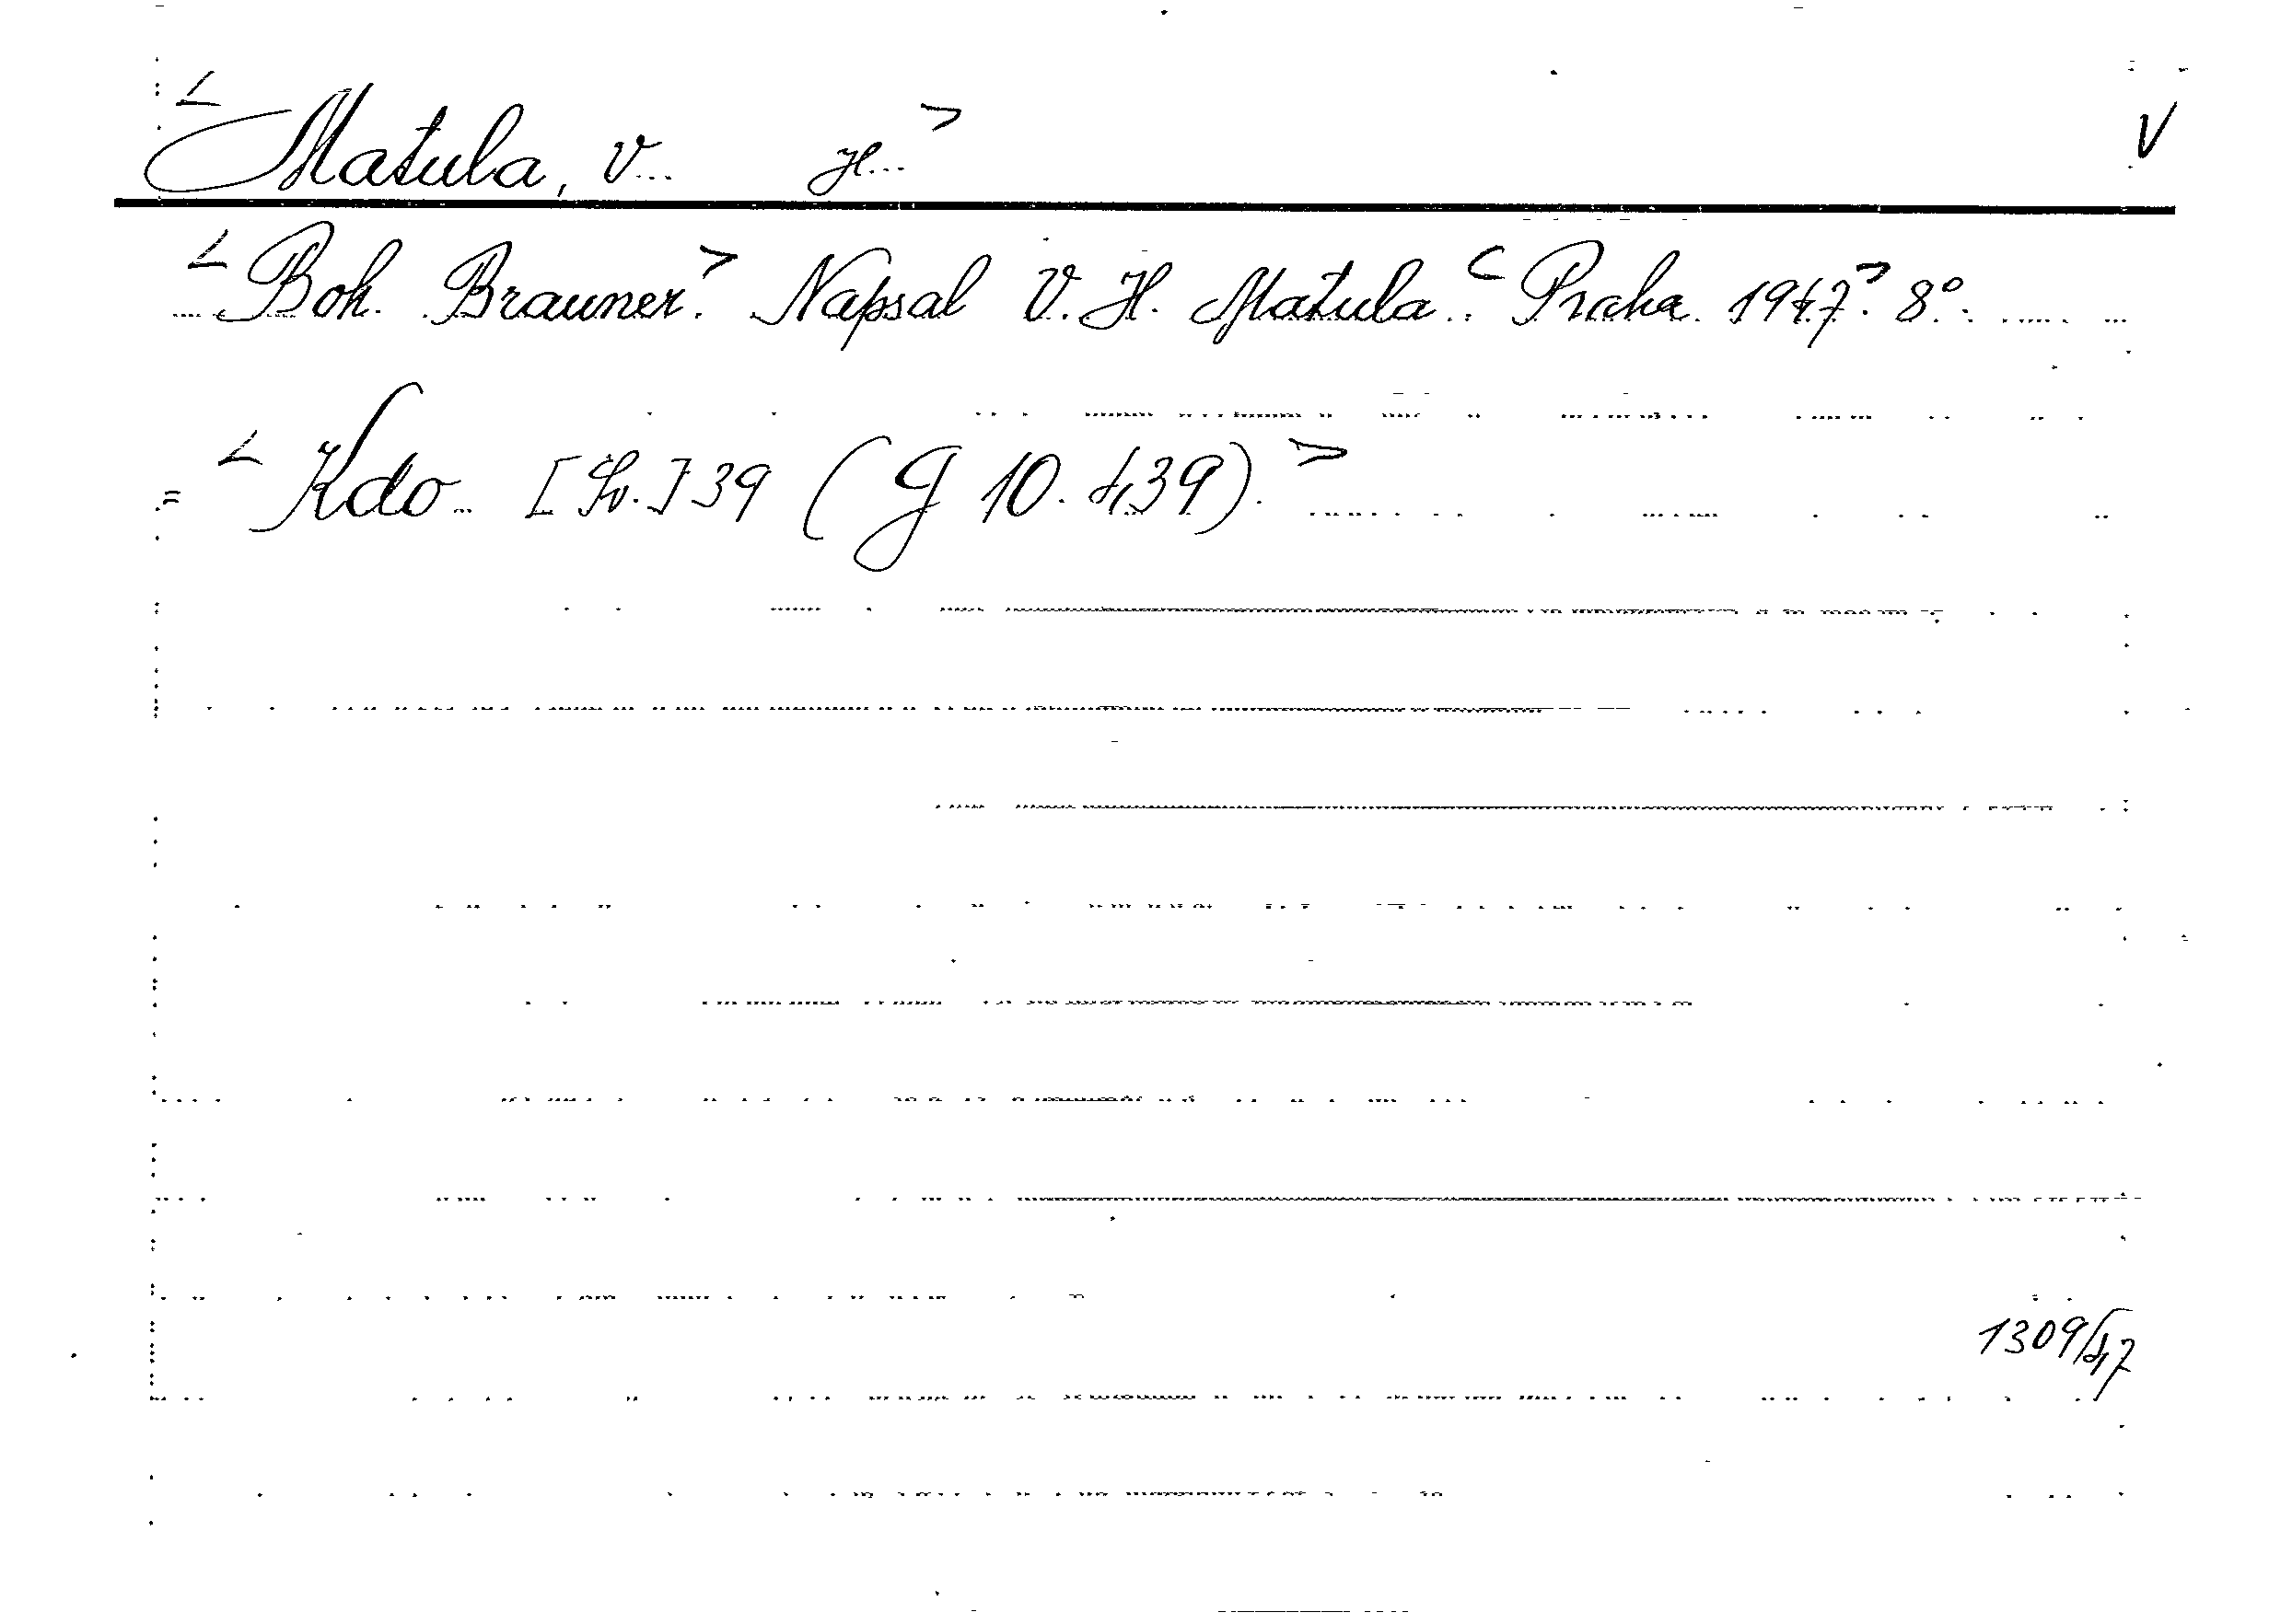 <Matula, V... H...> V
<Boh. Brauner.> Napsal V. H. Matula. <Praha 1947.> 8°.
= <Kdo... [Sv.] 39 (G 10.439).>
1309/47